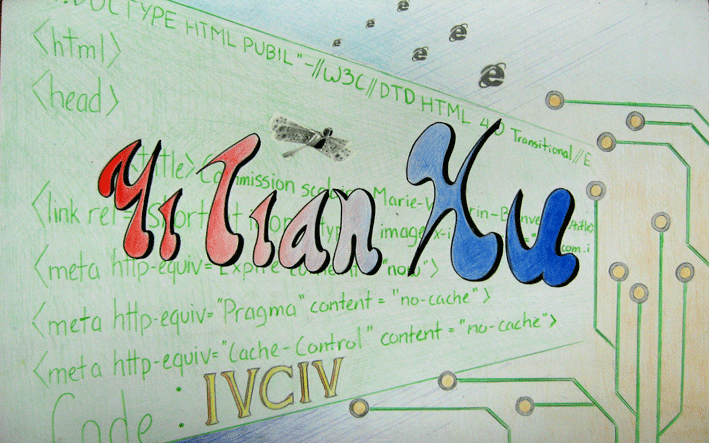 !DOCTYPE HTML PUBIL "-//W3C//DTD HTML 4.0 Transitional//E
<html>
<head>
title> Commission Marie- /title>
<link rel= image
Yi Tian Xu
<meta http-equiv= "now">
<meta http-equiv="Pragma" content = "no-cache">
<meta http-equiv="Cache-Control" content = "no-cache">
Code : IVCIV